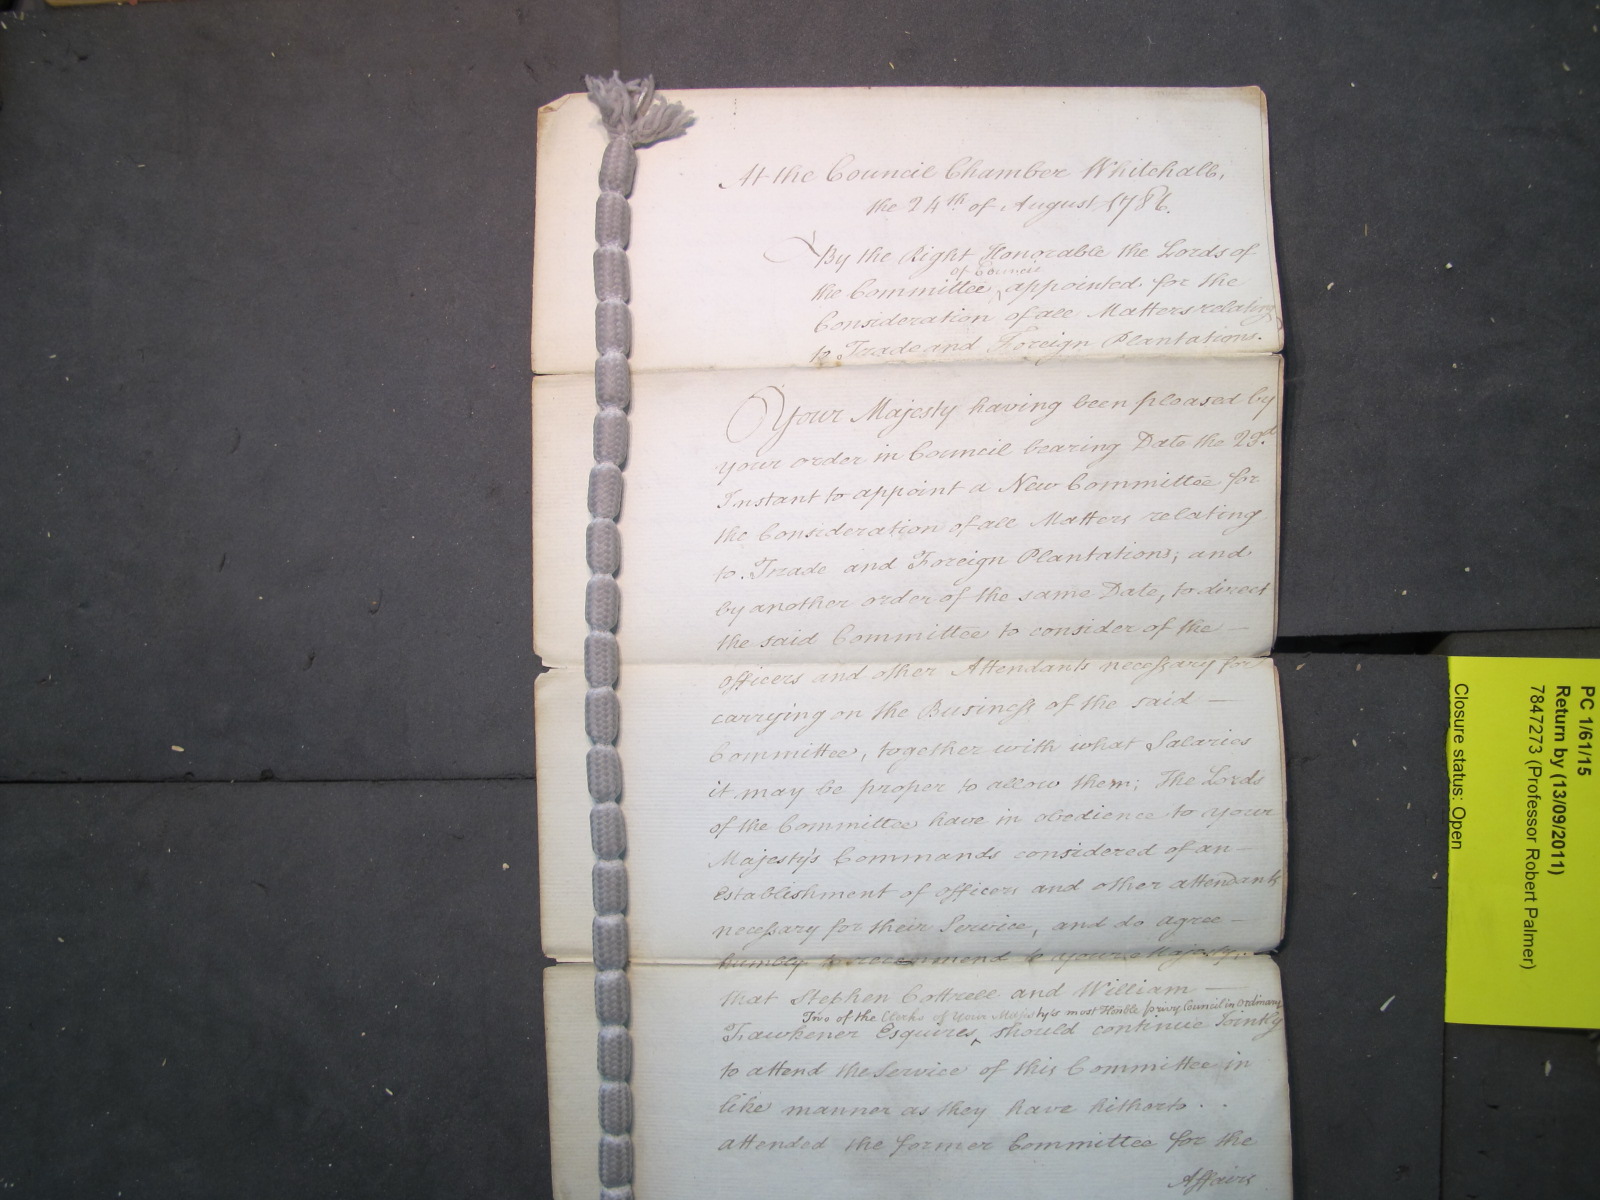 At the Council Chamber Whitehall,
the 24th of August 1786.
By the Right Honorable the Lords of
of Council
the Committee ‸ appointed for the
Consideration of all Matters relating
to Trade and Foreign Plantations.
Your Majesty having been pleased by
your order in Council bearing Date the 23d
Instant to appoint a New Committee for
the Consideration of all Matters relating
to Trade and Foreign Plantations; and
by another order of the same Date, to direct
the said Committee to consider of the —
officers and other Attendants necessary for
carrying on the Business of the said —
Committee, together with what Salaries
it may be proper to allow them; The Lords
of the Committee have in obedience to your
Majesty's Commands considered of an —
Establishment of officers and other attendants
necessary for their Service, and do agree —
humbly to recommend to your Majesty,
that Stephen Cottrell and William —
Two of the Clerks of Your Majesty's most Honble privy Council in Ordinary
Fawkener Esquires, ‸ should continue Jointly
to attend the Service of this Committee in
like manner as they have hitherto . .
attended the former Committee for the
Affairs
PC 1/61/15
Return by (13/09/2011)
7847273 (Professor Robert Palmer)
Closure status: Open